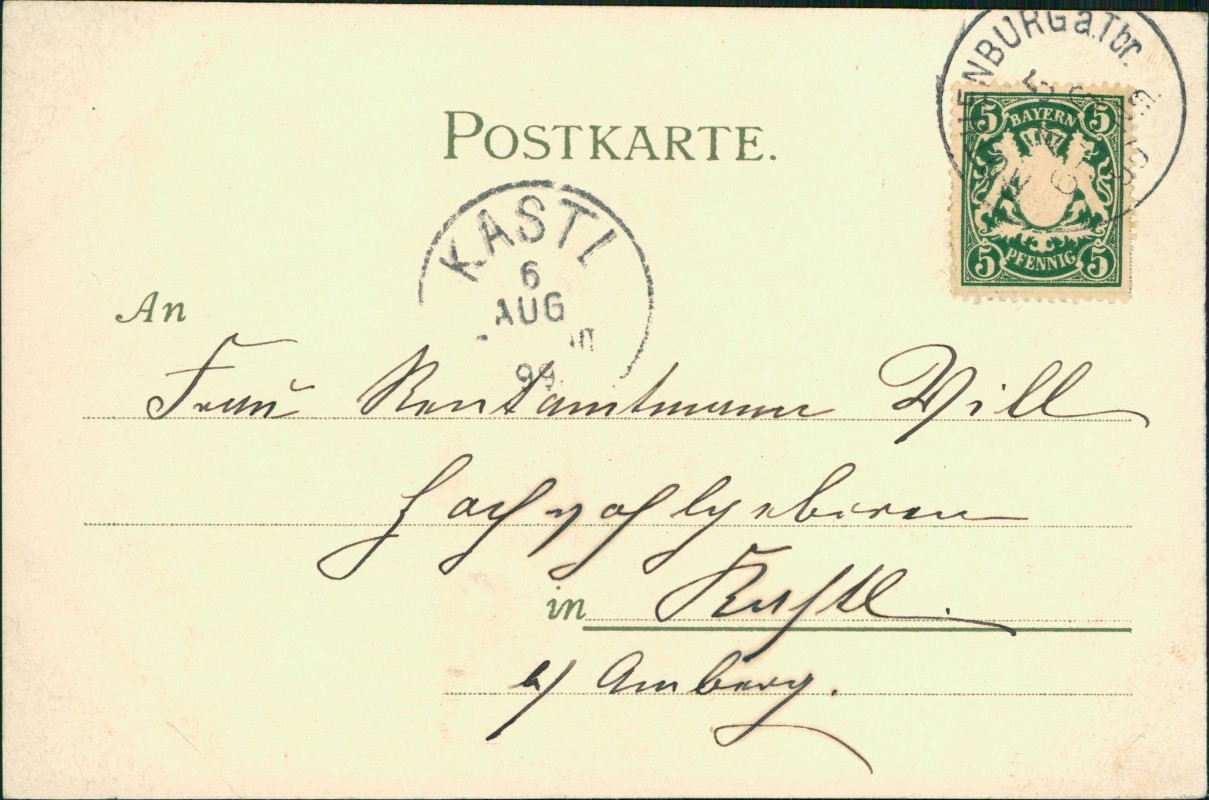 ENBURG a.Tbr.
5 BAYERN 5
5 PFENNIG 5
POSTKARTE.
KASTL
6
AUG
99
An
Frau Rentamtmann Will
Hochwohlgeboren
in Kastl.
b/ Amberg.